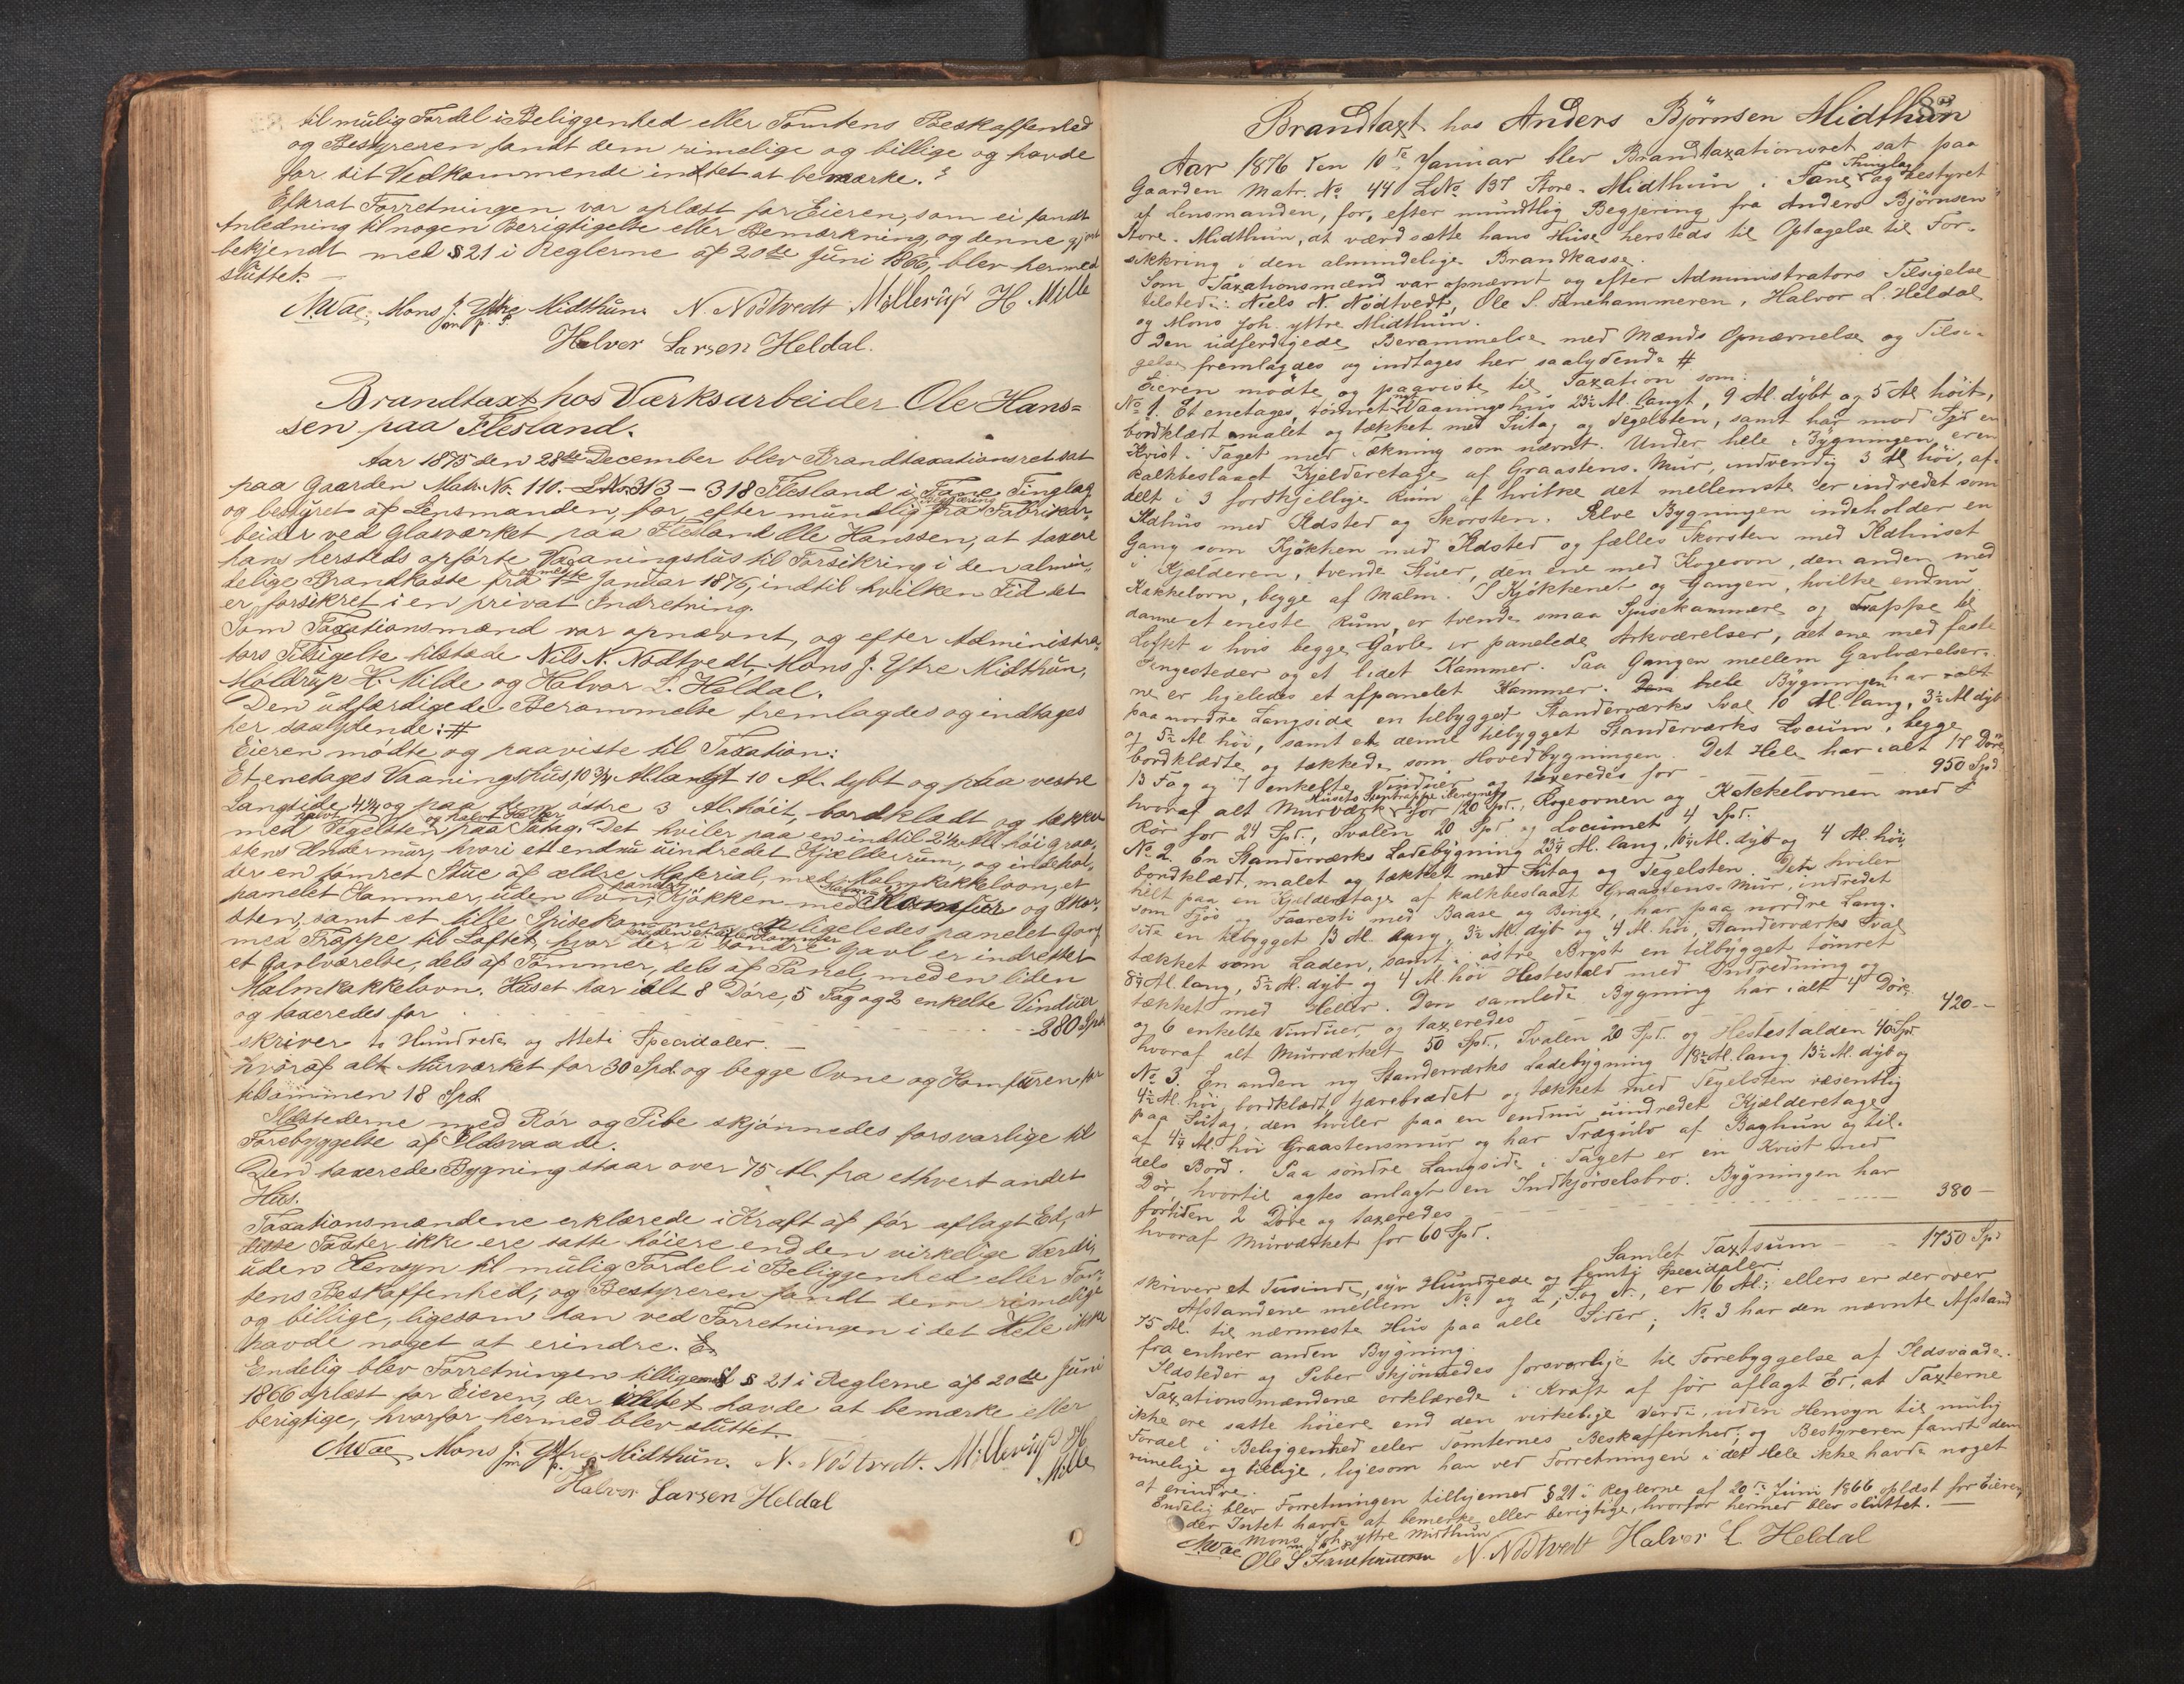 til mulig Fordel i Beliggenhed eller Tomtens Beskaffenhed
og Bestyreren fandt dem rimelige og billige og havde
for sit Vedkommende intet at bemærke.
Efterat Forretningen var oplæst for Eieren, som ei fandt
Anledning til nogen Berigtigelse eller Bemærkning, og denne gjort
bekjendt med § 21 i Reglerne af 20de Juni 1866, blev hermed
sluttet.
Mons J. Ytre Midthun N. Nödtvedt Mollerup H Milde
m. p. P.
Halvor Larsen Heldal.
Brandtaxt hos Værksarbeider Ole Hans=
sen paa Flesland.
Aar 1875 den 28de December blev Brandtaxationsret sat
paa Gaarden Matr. No. 110. LNo 313 - 318 Flesland i Fane Tinglag
og bestyret af Lensmanden, for, efter mundtlig Begjæring fra Fabrikar-
beider ved Glasværket paa Flesland Ole Hanssen, at taxere
hans hersteds opförte Vaaningshus til Forsikring i den almin-
delige Brandkasse fra 1ste Januar 1876, indtil hvilken Tid det
er forsikret i en privat Indretning.
Som Taxationsmænd var opnævnt, og efter Administra-
tors Tilsigelse tilstede Nils N. Nödtvedt, Mons J. Ytre Midthun,
Moldrup H. Milde og Halvor L. Heldal.
Den udfærdigede Berammelse fremlagdes og indtages
her saalydende: #
Eieren mødte og paaviste til Taxation:
Et enetages Vaaningshus, 10 3/4 Al. langt 10 Al. dybt og paa vestre
Langside 4 1/4 og paa den østre 3 Al. höit, bordklædt og tækket
med halvt Tegelsten og halvt Heller paa Sutag. Det hviler paa en indtil 2 1/2 Al. höi Graa-
stens Undermur, hvori et endnu uindredet Kjælderrum, og indehol-
der en tømret Stue af ældre Material, med Malmkakkelovn, et
panelet Kammer, uden Ovn, panelet Kjökken med Malm Komfur og Skor-
sten, samt et lille Spisekammer, ligeledes panelet Gang
med Trappe til Loftet, hvor der i söndre Gavl er indredet
et Gavlværelse, dels af Tømmer, dels af Panel, med en liden
Malmkakkelovn. Huset har ialt 8 Döre, 5 Fag og 2 enkelte Vinduer
og taxeredes for 280 Spd.
skriver to Hundrede og Otteti Speciedaler.
hvoraf alt Murværket for 30 Spd. og begge Ovne og Komfuren for
tilsammen 18 Spd.
Ildstederne med Rör og Pibe skjönnedes forsvarlige til
Forebyggelse af Ildsvaade.
Den taxerede Bygning staar over 75 Al. fra ethvert andet
Hus.
Taxationsmændene erklærede i Kraft af för aflagt Ed, at
disse Taxter ikke ere satte höiere end den virkelige Værdi,
uden Hensyn til mulig Fordel i Beliggenhed eller Tom-
tens Beskaffenhed, og Bestyreren fandt dem rimelige
og billige, ligesom han ved Forretningen i det Hele ikke
havde noget at erindre.
Endelig blev Forretningen tilligemed § 21 i Reglerne af 20de Juni
1866 oplæst for Eieren, der intet havde at bemærke eller
berigtige, hvorfor hermed blev sluttet.
Mons J. Ytre Midthun. N. Nödtvedt. Mollerup H
m. p. P. Milde
Halvor Larsen Heldal
Brandtaxt hos Anders Björnsen Midthun
Aar 1876 den 10de Januar blev Brandtaxationsret sat paa
Gaarden Matr. No. 44 LNo. 137 Store-Midthun i Fane Thinglag og bestyret
af Lensmanden, for, efter mundtlig Begjering fra Anders Björnsen
Store-Midthun, at værdsætte hans Huse hersteds til Optagelse til For-
sikkring i den almindelige Brandkasse.
Som Taxationsmænd var opnævnt og efter Administrators Tilsigelse
tilstede: Niels N. Nödtvedt, Ole S. Fanehammeren, Halvor L. Heldal
og Mons Joh. yttre Midthun.
Den udferdigede Berammelse med Mænds Opnævnelse og Tilsi-
gelse fremlagdes og indtages her saalydende #
Eieren mødte og paaviste til Taxation som:
No 1. Et enetages, tömret nyt Vaaningshus 23 1/2 Al. langt, 9 Al. dybt og 5 Al höit,
bordklædt malet og tækket med Sutag og Tegelsten, samt har mod Syd en
Kvist i Taget med Tækning som nævnt. Under hele Bygningen er en
kalkbeslaaet Kjelderetage af Graastens-Mur, indvendig 3 Al höi, af-
delt i 3 forskjellige Rum af hvilke det mellemste er indredet som
Ildhus med Ildsted og Skorsten. Selve Bygningen indeholder en
Gang som Kjökken med Ildsted og fælles Skorsten med Ildhuset
i Kjælderen, tvende Stuer, den ene med Kogeovn, den anden med
Kakkelovn, begge af Malm. I Kjökkenet og Gangen, hvilke endnu
danne et eneste Rum, er tvende smaa Spisekammere og Trappe til
Loftet i hvis begge Gavle er panelede Arkværelser, det ene med faste
Sengesteder og et lidet Kammer. Paa Gangen mellem Gavlværelser-
ne er ligeledes et afpanelet Kammer. hele Bygningen har ialt
paa nordre Langside en tilbygget Standerværks Sval 10 Al. lang, 3 1/2 Al dyb
og 5 1/2 Al. höi, samt et denne tilbygget Standerværks Locum, begge
bordklædte og tækkede som Hovedbygningen. Det Hele har ialt 17 Döre
13 Fag og 7 enkelte Vinduer og taxeredes for 950 Spd
hvoraf alt Murværk for 120 Spd., Kogeovnen og Kakkelovnen med
Rör for 24 Spd., Svalen 20 Spd og Locumet 4 Spd.
No 2. En Standerværks Ladebygning 23 1/4 Al. lang, 10 1/4 Al. dyb og 4 Al. höi,
bordklædt, malet og tækket med Sutag og Tegelsten. Den hviler
helt paa en Kjelderetage af kalkbeslaaet Graastens-Mur, indredet
som Fjøs og Faaresti med Baase og Binge, har paa nordre Lang-
side en tilbygget 13 Al. lang, 3 1/2 Al. dyb og 4 Al. höi, Standerværks Sval
tækket som Laden, samt i østre Bryst en tilbygget tömret
8 1/4 Al. lang, 5 1/2 Al. dyb og 4 Al. höi Hestestald med Indredning og
tækket med Heller. Den samlede Bygning har ialt 4 Döre
og 6 enkelte Vinduer, og taxeredes 420 -
hvoraf alt Murværket 50 Spd., Svalen 20 Spd. og Hestestalden 40 Spd.
No 3. En anden ny Standerværks Ladebygning 18 1/2 Al. lang 13 1/2 Al. dyb og
4 1/2 Al. höi, bordklædt, tjærebrædet og tækket med Tegelsten væsentlig
paa Sutag, den hviler paa en endnu uindredet Kjælderetage
af 4 1/4 Al. höi Graastensmur og har Trægulv af Baghun og til-
dels Bord. Paa söndre Langside i Taget er en Kvist med
Dör, hvortil agtes anlagt en Indkjörselsbro. Bygningen har
fortiden 2 Döre og taxeredes 380 -
hvoraf Murværket for 60 Spd.
Samlet Taxtsum 1750 Spd
skriver et Tusinde, syv Hundrede og femti Speciedaler.
Afstandene mellem No 1 og 2, er 16 Al.; ellers er der over
75 Al. til nærmeste Hus paa alle Sider; No 3 har den nævnte Afstand
fra enhver anden Bygning.
Ildsteder og Piber skjönnedes forsvarlige til Forebyggelse af Ildsvaade.
Taxationsmændene erklærede i Kraft af för aflagt Ed, at Taxterne
ikke ere satte höiere end den virkelige Verdi, uden Hensyn til mulig
Fordel i Beliggenhed eller Tomternes Beskaffenhed; og Bestyreren fandt dem
rimelige og billige, ligesom han ved Forretningen i det Hele ikke havde noget
at erindre.
Endelig blev Forretningen tilligemed § 21 i Reglerne af 20de Juni 1866 oplæst for Eieren,
der Intet havde at bemerke eller berigtige, hvorfor hermed blev sluttet.
Mons Joh. yttre Midthun
Ole S Fanehammeren N. Nödtvedt Halvor L Heldal